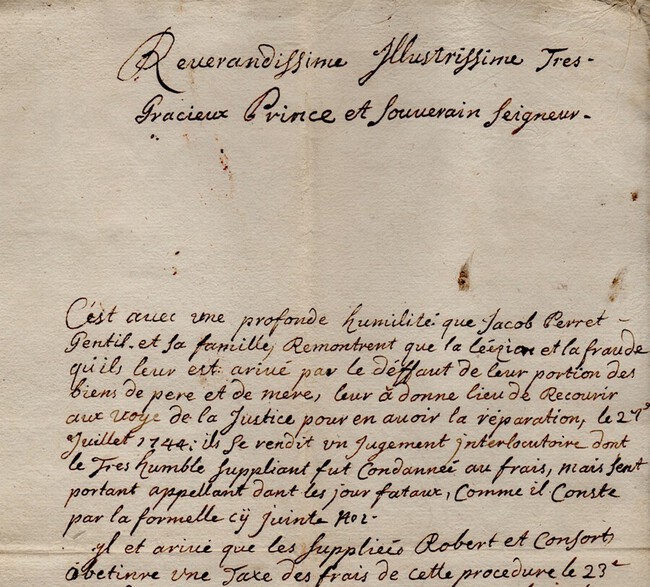 Reverandissime Illustrissime Tres-
Gracieux Prince et Souverain Seigneur-
C'est avec une profonde humilité que Jacob Perret-
Gentil. et sa famille, Remontrent que la lézion et la fraude
qu'ils leur est arivé par le deffaut de leur portion des
biens de pere et de mere, leur à donne lieu de Recourir
aux voye de la Justice pour en avoir la réparation, le
Juillet 1744. ils se rendit un Jugement interlocutoire dont
le Tres humble Suppliant fut Condanneé au frais, mais sent
portant appellant dant les jour fataux, Comme il Conste
par la formelle cÿ Juinte
yl et arivé que les Suppliéés Robert et Consorts
obetinre une Taxe des frais de cette procedure le 23e